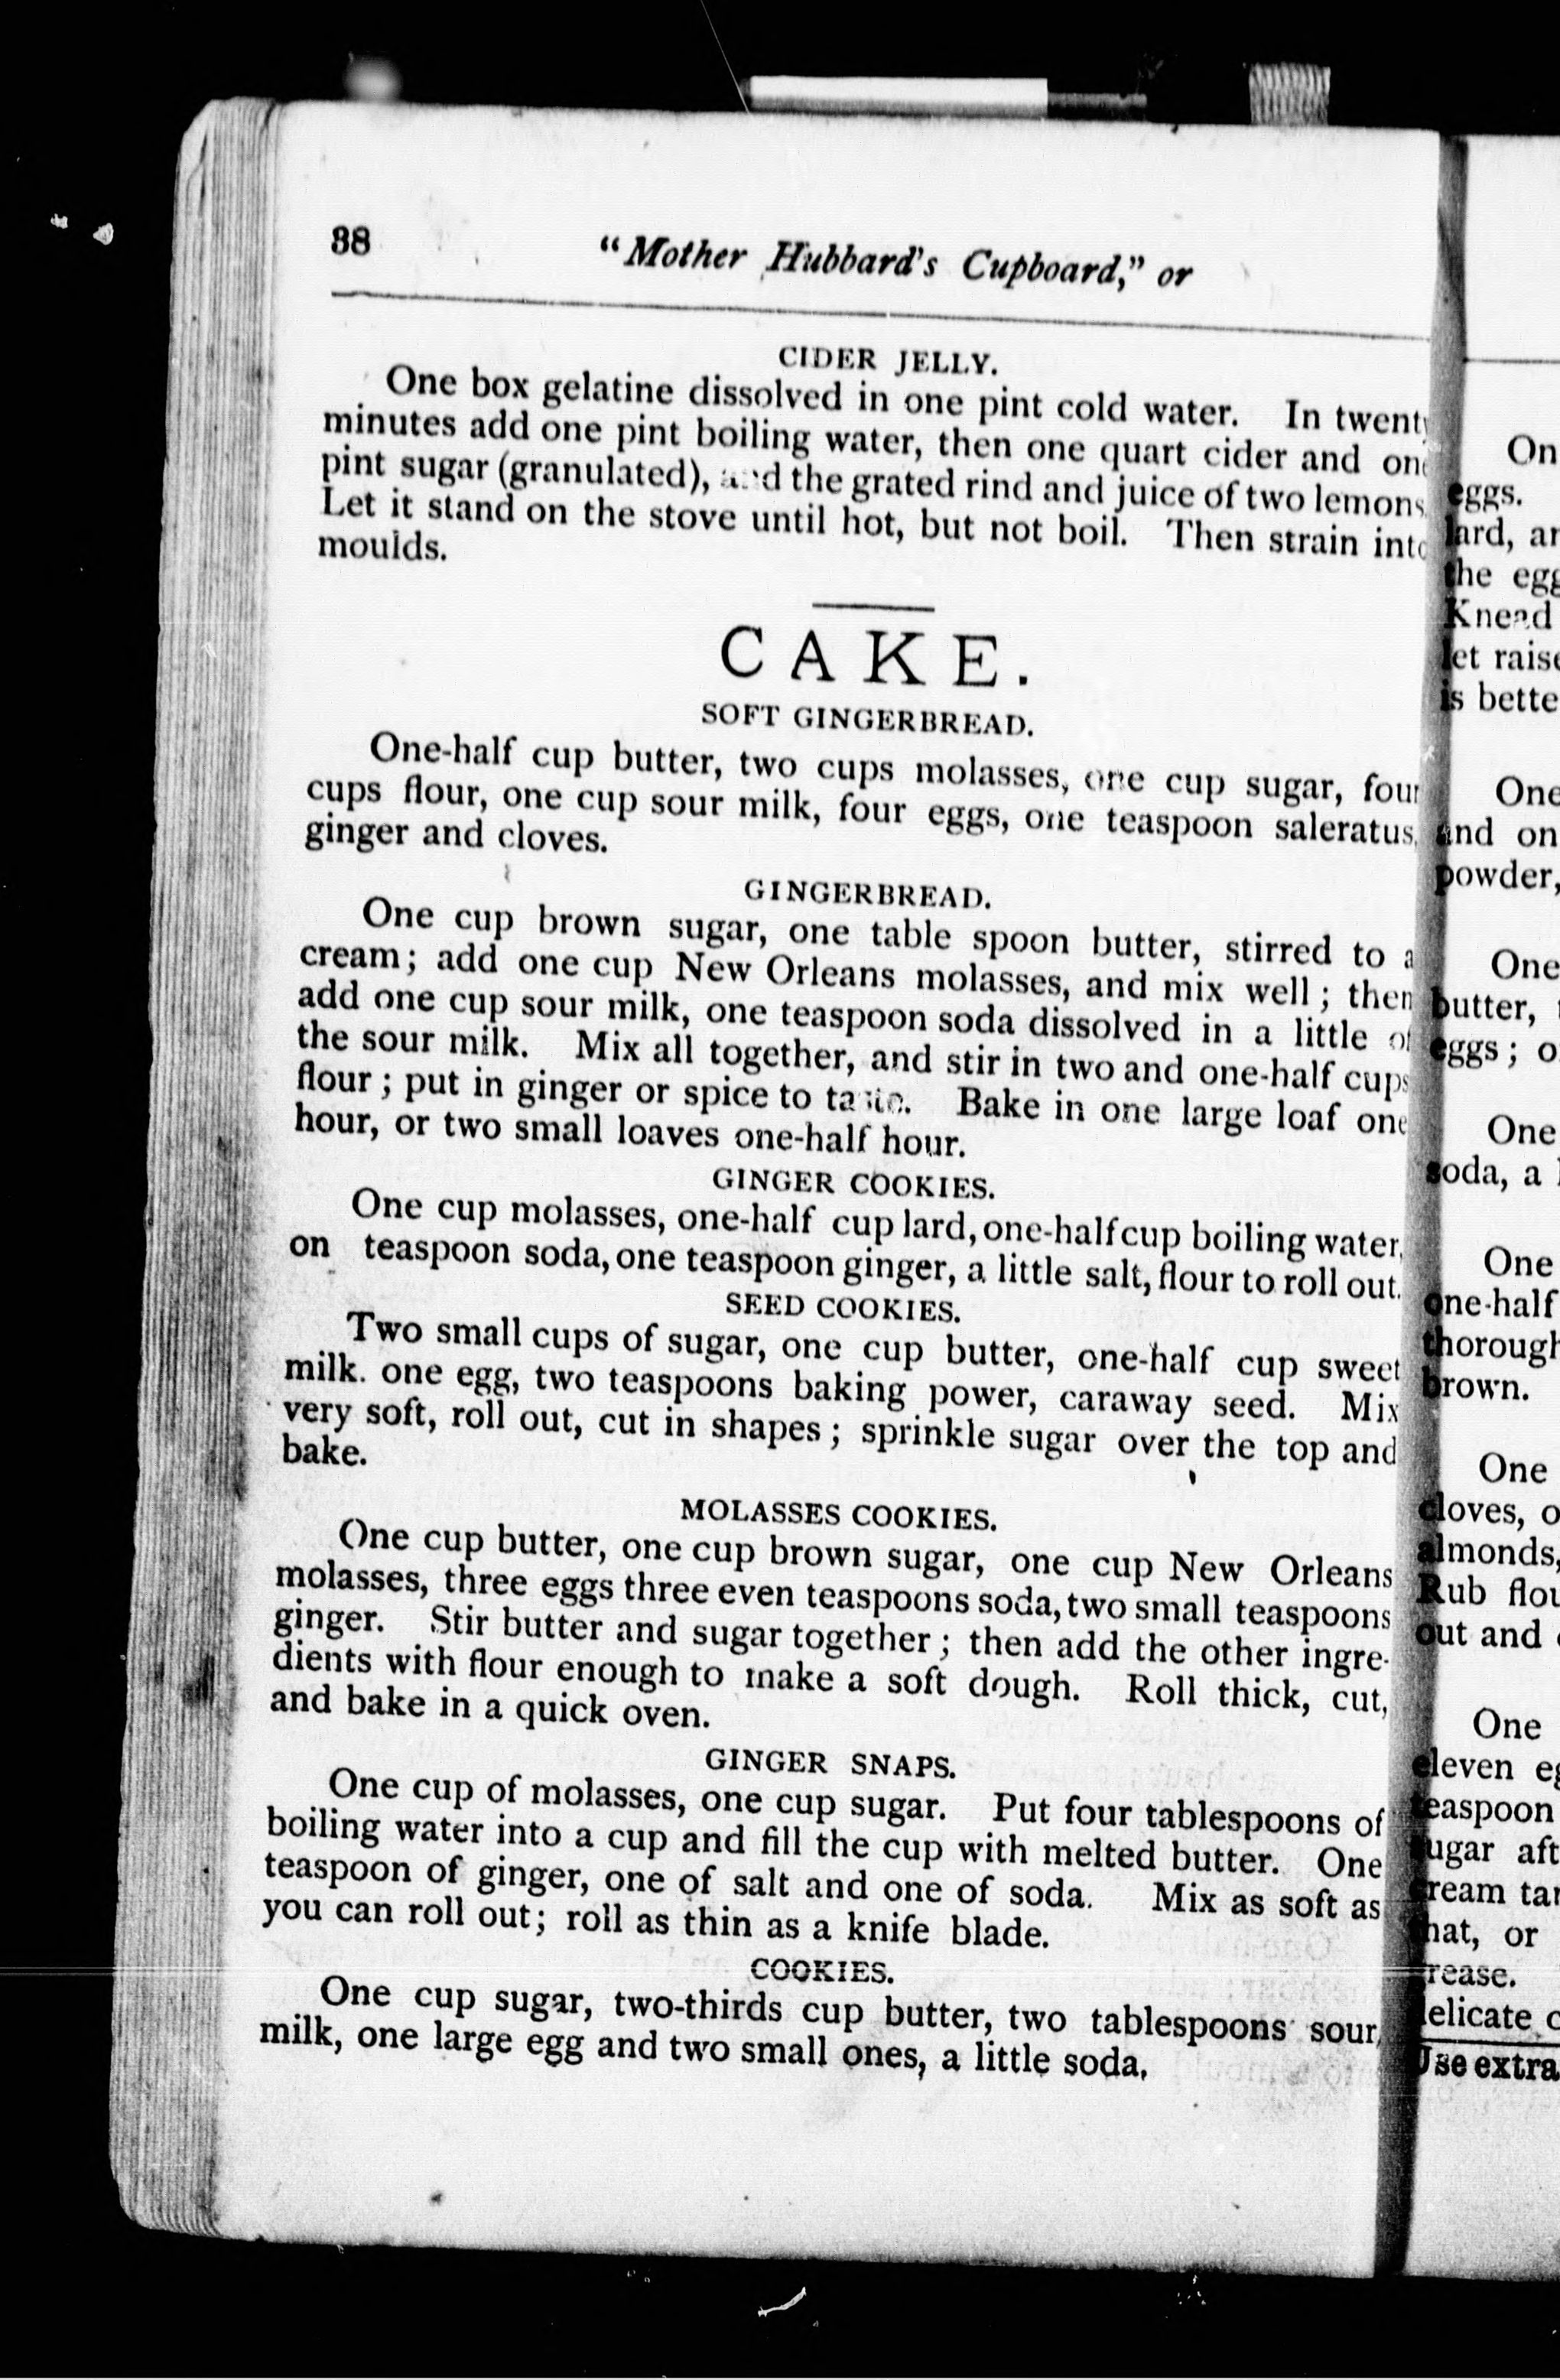 38
"Mother Hubbard's Cupboard," or
CIDER JELLY.
One box gelatine dissolved in one pint cold water. In twenty
minutes add one pint boiling water, then one quart cider and one
pint sugar (granulated), and the grated rind and juice of two lemons.
Let it stand on the stove until hot, but not boil. Then strain into
moulds.
CAKE.
SOFT GINGERBREAD.
One-half cup butter, two cups molasses, one cup sugar, four
cups flour, one cup sour milk, four eggs, one teaspoon saleratus,
ginger and cloves.
GINGERBREAD.
One cup brown sugar, one table spoon butter, stirred to a
cream; add one cup New Orleans molasses, and mix well; then
add one cup sour milk, one teaspoon soda dissolved in a little of
the sour milk. Mix all together, and stir in two and one-half cups
flour; put in ginger or spice to taste. Bake in one large loaf one
hour, or two small loaves one-half hour.
GINGER COOKIES.
One cup molasses, one-half cup lard, one-half cup boiling water,
on teaspoon soda, one teaspoon ginger, a little salt, flour to roll out.
SEED COOKIES.
Two small cups of sugar, one cup butter, one-half cup sweet
milk. one egg, two teaspoons baking power, caraway seed. Mix
very soft, roll out, cut in shapes; sprinkle sugar over the top and
bake.
MOLASSES COOKIES.
One cup butter, one cup brown sugar, one cup New Orleans
molasses, three eggs three even teaspoons soda, two small teaspoons
ginger. Stir butter and sugar together; then add the other ingre-
dients with flour enough to make a soft dough. Roll thick, cut,
and bake in a quick oven.
GINGER SNAPS.
One cup of molasses, one cup sugar. Put four tablespoons of
boiling water into a cup and fill the cup with melted butter. One
teaspoon of ginger, one of salt and one of soda. Mix as soft as
you can roll out; roll as thin as a knife blade.
COOKIES.
One cup sugar, two-thirds cup butter, two tablespoons sour
milk, one large egg and two small ones, a little soda.
On
eggs.
lard, an
the egg
Knead
let raise
is bette
One
and on
powder,
One
butter,
eggs; o
One
soda, a
One
one-half
thorough
brown.
One
cloves, o
almonds,
Rub flou
out and
One
eleven eg
teaspoon
sugar aft
cream tar
that, or
grease.
delicate c
Use extra